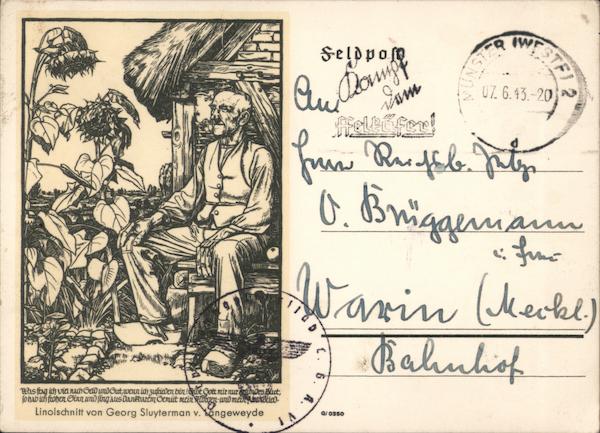 Feldpost
MÜNSTER (WESTF) 2
07.6.43.-20
Kampf
dem
An
Herrn Reichsb.
O. Brüggemann
u. Frau
Warin (Meckl.)
Bahnhof
Was frag ich viel nach Geld und Gut, wenn ich zufrieden bin! Gibt Gott mir nur gesundes Blut,
so hab ich frohen Sinn und sing aus dankbarem Gemüt mein Morgen- und mein Abendlied.
Linolschnitt von Georg Sluyterman v. Langeweyde
G/0350